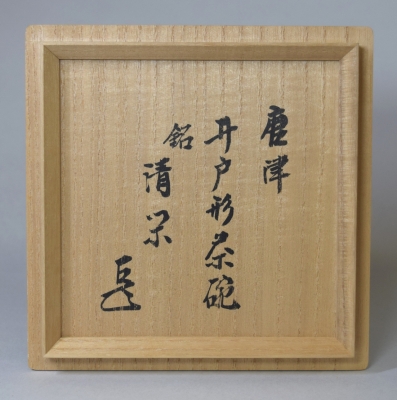 唐津
井戸形茶碗
銘
清栄